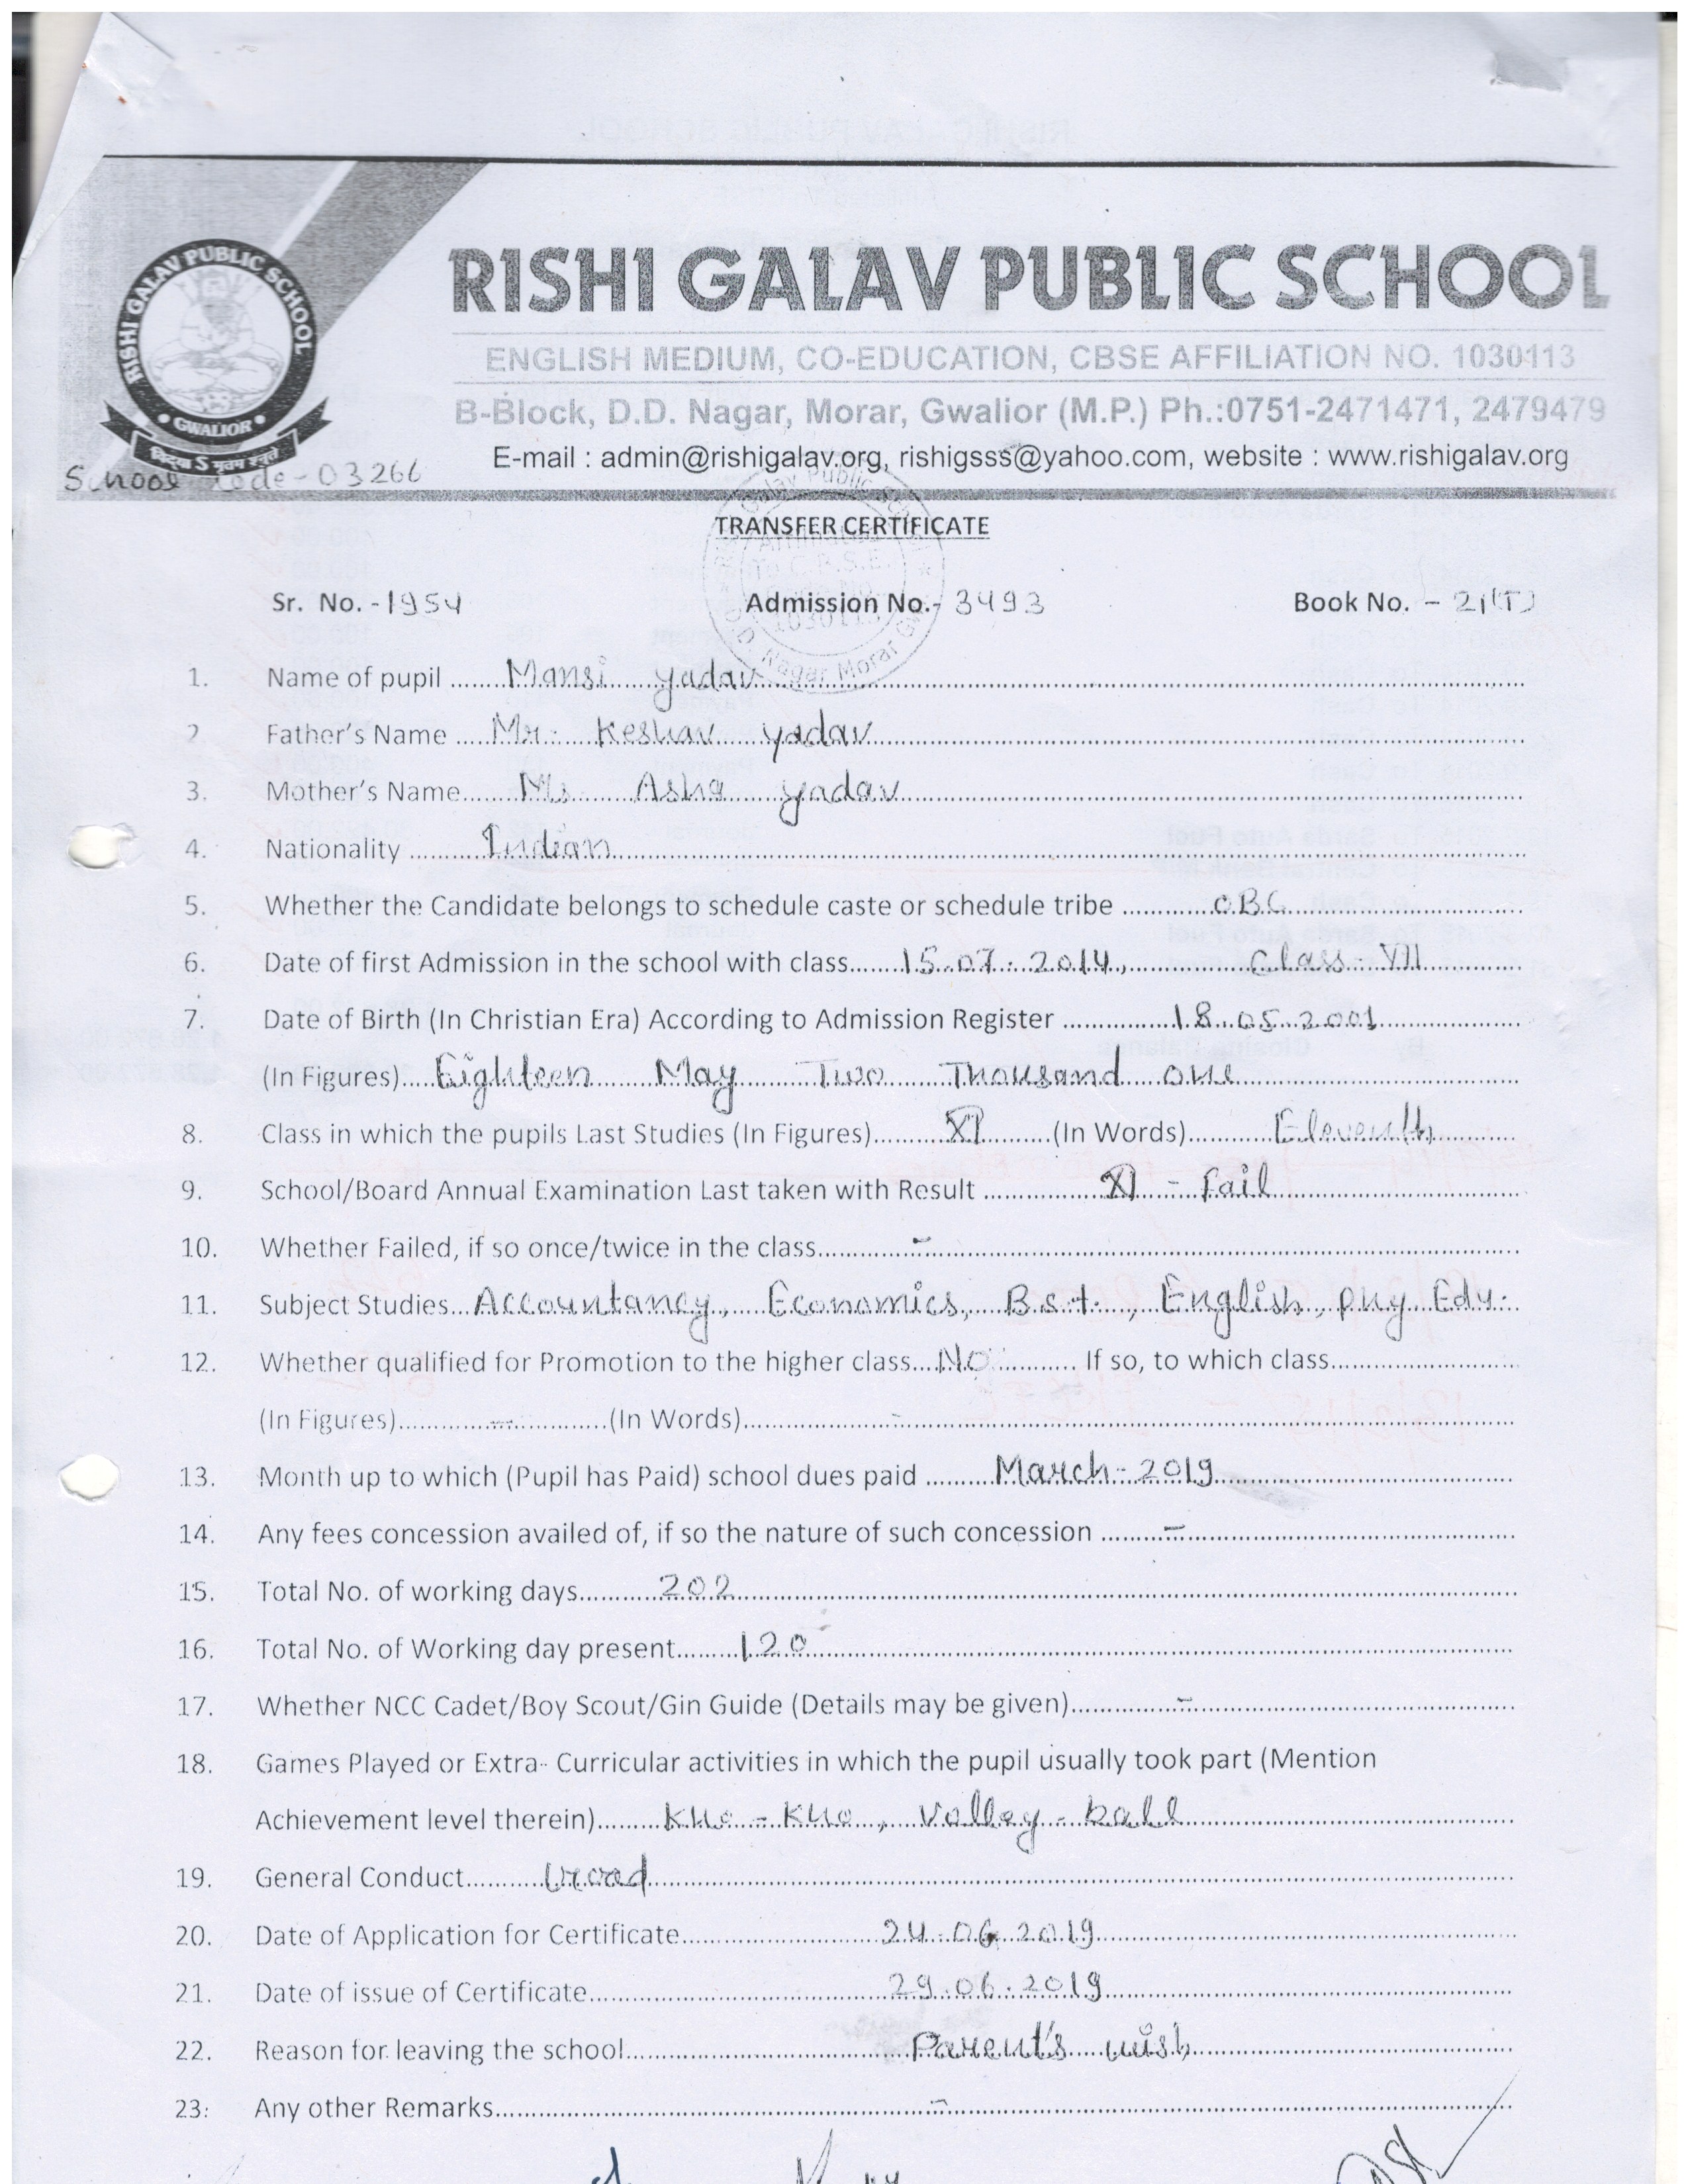 RISHI GALAV PUBLIC SCHOOL
ENGLISH MEDIUM, CO-EDUCATION, CBSE AFFILIATION NO. 1030113
B-Block, D.D. Nagar, Morar, Gwalior (M.P.) Ph.:0751-2471471, 2479479
E-mail : admin@rishigalav.org, rishigsss@yahoo.com, website : www.rishigalav.org
RISHI GALAV PUBLIC SCHOOL
GWALIOR
School Code - 03266
TRANSFER CERTIFICATE
Sr. No. - 1954 Admission No.- 3493 Book No. - 21(T)
1. Name of pupil Mansi yadav
2 Father's Name Mr. Keshav yadav
3. Mother's Name Ms Asha yadav
4. Nationality Indian
5. Whether the Candidate belongs to schedule caste or schedule tribe OBC
6. Date of first Admission in the school with class 15.07.2014, Class - VII
7. Date of Birth (In Christian Era) According to Admission Register 18.05.2001
(In Figures) Eighteen May Two Thousand one
8. Class in which the pupils Last Studies (In Figures) XI (In Words) Eleventh
9. School/Board Annual Examination Last taken with Result XI - Fail
10. Whether Failed, if so once/twice in the class -
11. Subject Studies Accountancy, Economics, B.s.t., English, phy Edu.
12. Whether qualified for Promotion to the higher class No If so, to which class
(In Figures) - (In Words) -
13. Month up to which (Pupil has Paid) school dues paid March - 2019
14. Any fees concession availed of, if so the nature of such concession -
15. Total No. of working days 202
16. Total No. of Working day present 120
17. Whether NCC Cadet/Boy Scout/Gin Guide (Details may be given) -
18. Games Played or Extra- Curricular activities in which the pupil usually took part (Mention
Achievement level therein) Kho - Kho, Volley - ball
19. General Conduct Good
20. Date of Application for Certificate 24.06.2019
21. Date of issue of Certificate 29.06.2019
22. Reason for leaving the school Parent's wish
23: Any other Remarks -